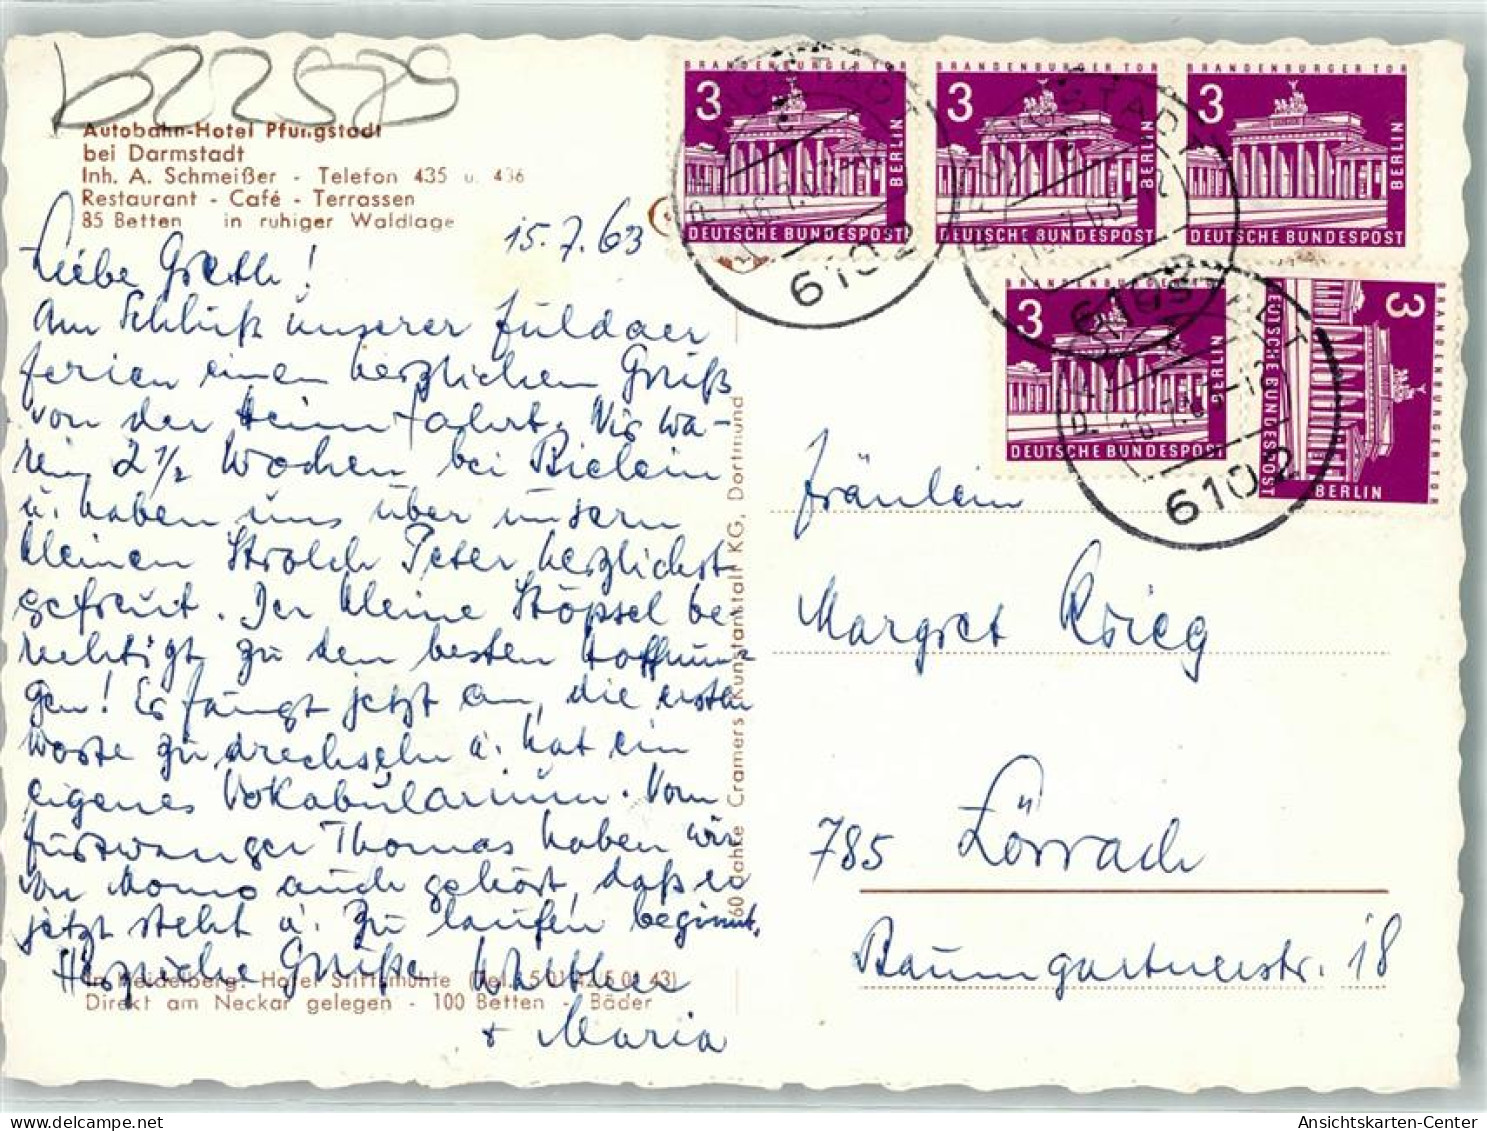 b22579
Autobahn-Hotel Pfungstadt
bei Darmstadt
Inh. A. Schmeißer - Telefon 435 u. 436
Restaurant - Café - Terrassen
85 Betten in ruhiger Waldlage
15.7.63
Liebe Greth!
Am Schluß unserer Fuldaer
ferien einen herzlichen Gruß
von der Heimfahrt. Wir wa-
ren 2 1/2 Wochen bei
u. haben uns über unsern
kleinen Strolch Peter herzlichst
gefreut. Der kleine Stöpsel be
rechtigt zu den besten Hoffnun-
gen! Er fängt jetzt an, die ersten
Worte zu drechseln u. hat ein
eigenes Vokabularium. Vom
Furtwanger Thomas haben wir
von Momo auch gehört, daß er
jetzt steht u. zu laufen beginnt.
Herzliche Grüße Walther
+ Maria
In Heidelberg: Hotel Stiftsmühle (Tel. 5 01 42/5 01 43)
Direkt am Neckar gelegen - 100 Betten - Bäder
60 Jahre Cramers Kunstanstalt KG, Dortmund
BRANDENBURGER TOR
3
BERLIN
DEUTSCHE BUNDESPOST
BRANDENBURGER TOR
3
BERLIN
DEUTSCHE BUNDESPOST
BRANDENBURGER TOR
3
BERLIN
DEUTSCHE BUNDESPOST
BRANDENBURGER TOR
3
BERLIN
DEUTSCHE BUNDESPOST
BRANDENBURGER TOR
3
BERLIN
DEUTSCHE BUNDESPOST
PFUNGSTADT
16.7.63
6102
PFUNGSTADT
6102
PFUNGSTADT
16.7.63-12
6102
Fräulein
Margret Krieg
785 Lörrach
Baumgartnerstr. 18
Ansichtskarten-Center